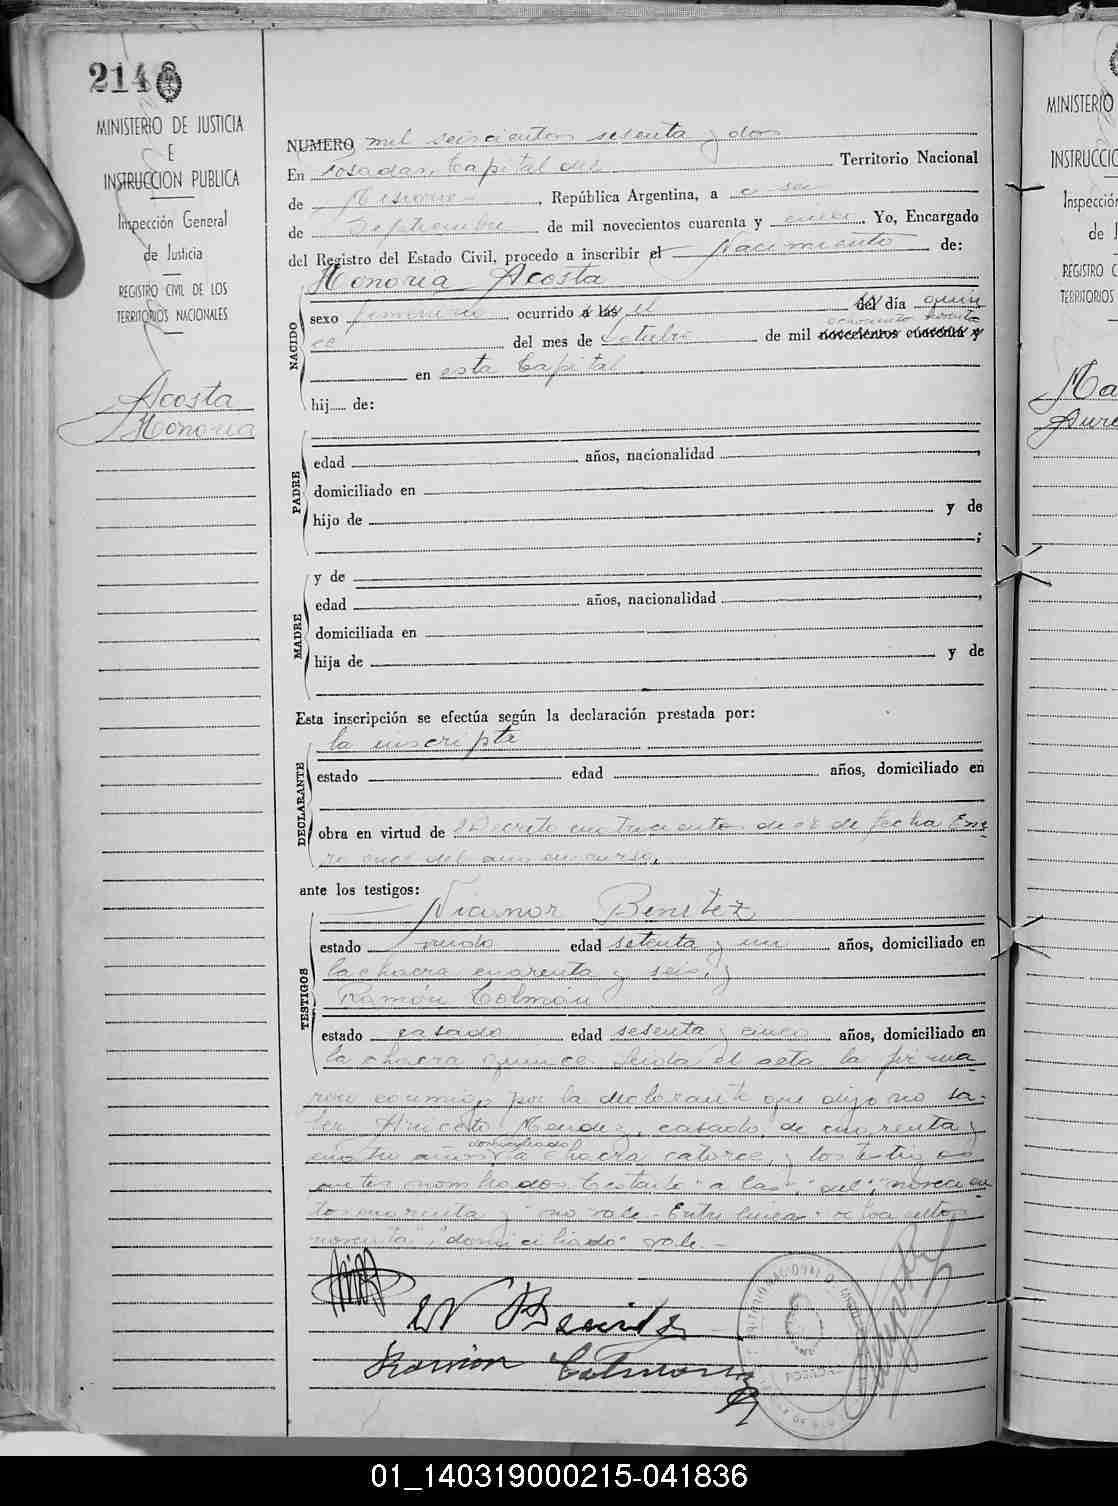 2148
MINISTERIO DE JUSTICIA
E
INSTRUCCION PUBLICA
Inspección General
de Justicia
REGISTRO CIVIL DE LOS
TERRITORIOS NACIONALES
Acosta
Honoria
NUMERO mil seiscientos sesenta y dos
En Posadas, Capital del Territorio Nacional
de Misiones, República Argentina, a
de Septiembre de mil novecientos cuarenta y cinco. Yo, Encargado
del Registro del Estado Civil, procedo a inscribir el Nacimiento de:
NACIDO
Honoria Acosta
sexo femenino, ocurrido a las el del día quin
ochocientos noventa
ce del mes de Octubre de mil novecientos cuarenta y
en esta Capital
hij.... de:
PADRE
edad años, nacionalidad ,
domiciliado en
hijo de y de
;
MADRE
y de
edad años, nacionalidad ,
domiciliada en
hija de y de
Esta inscripción se efectúa según la declaración prestada por:
DECLARANTE
la inscripta
estado edad años, domiciliado en
obra en virtud de Decreto de fecha Ene
ro once del año en curso.
ante los testigos:
TESTIGOS
Nicanor Benitez
estado viudo edad setenta y un años, domiciliado en
la chacra cuarenta y seis, y
Ramón Colmán
estado casado edad sesenta y cinco años, domiciliado en
la chacra quince. Leida el acta la firma
ron conmigo por la declarante que dijo no sa-
ber Aniceto Mendez, casado, de cuarenta y
domiciliado
cuatro años, la chacra catorce, y los testigos
antes nombrados. Testado "a las", "del", "novecien
tos cuarenta y" no vale.- Entre lineas: "ochocientos
noventa", "domiciliado" vale.-
N Benitez
Ramon Colman
TERRITORIO NACIONAL DE MISIONES
POSADAS
MINISTERIO
INSTRUCCIO
Inspección
de J
REGISTRO C
TERRITORIOS
Ma
Aure
01_140319000215-041836